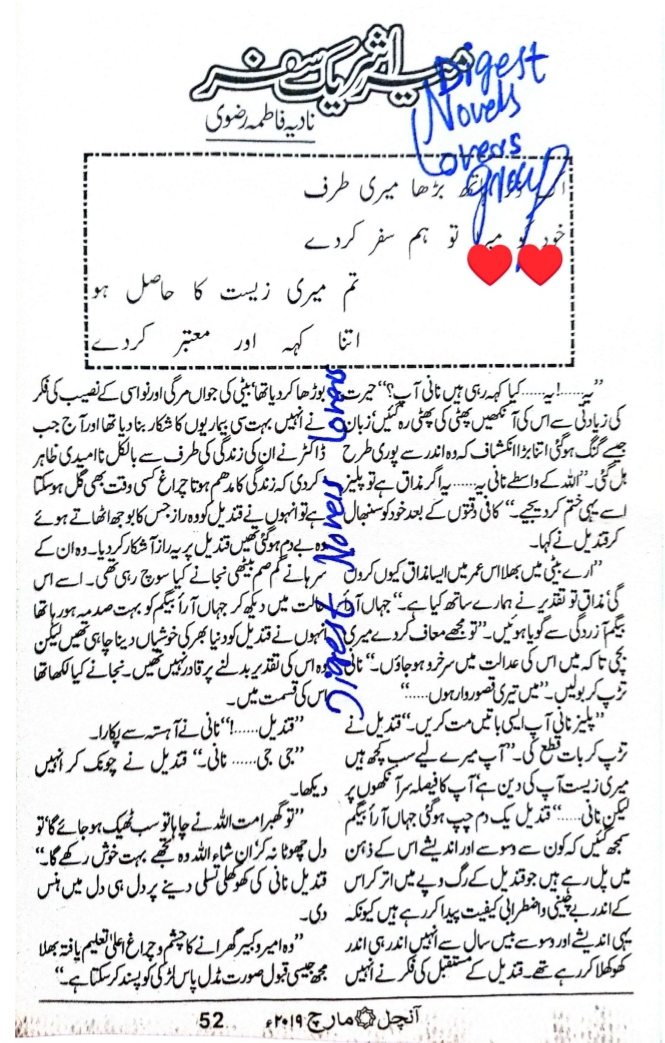 میرا شریک سفر
نادیہ فاطمہ رضوی
Digest
Novels
Lovers
group
بڑھا میری طرف
خود تو ہم سفر کردے
تم میری زیست کا حاصل ہو
اتنا کہہ اور معتبر کردے
”یہ......!یہ...... کیا کہہ رہی ہیں نانی آپ؟“ حیرت
کی زیادتی سے اس کی آنکھیں پھٹی کی پھٹی رہ گئیں‘ زبان
جیسے گنگ ہوگئی اتنا بڑا انکشاف کہ وہ اندر سے پوری طرح
ہل گئی۔ ”اللہ کے واسطے نانی یہ...... یہ اگر مذاق ہے تو پلیز
اسے یہی ختم کردیجیے۔“ کافی دقتوں کے بعد خود کو سنبھال
کر قندیل نے کہا۔
”ارے بیٹی میں بھلا اس عمر میں ایسا مذاق کیوں کروں
گی‘ مذاق تو تقدیر نے ہمارے ساتھ کیا ہے۔“ جہاں آرأ
بیگم آزردگی سے گویا ہوئیں۔ ”تو مجھے معاف کردے میری
بچی تاکہ میں اس کی عدالت میں سرخرو ہوجاؤں۔“ نانی
تڑپ کر بولیں۔ ”میں تیری قصوروار ہوں......“
”پلیز نانی آپ ایسی باتیں مت کریں۔“ قندیل نے
تڑپ کر بات قطع کی۔ ”آپ میرے لیے سب کچھ ہیں
میری زیست آپ کی دین ہے‘ آپ کا فیصلہ سر آنکھوں پر
لیکن نانی......“ قندیل یک دم چپ ہوگئی جہاں آرأ بیگم
سمجھ گئیں کہ کون سے وسوسے اور اندیشے اس کے ذہن
میں پل رہے ہیں جو قندیل کے رگ وپے میں اتر کر اس
کے اندر بے چینی و اضطرابی کیفیت پیدا کررہے ہیں کیونکہ
یہی اندیشے اور وسوسے بیس سال سے انہیں اندر ہی اندر
کھوکھلا کررہے تھے۔ قندیل کے مستقبل کی فکر نے انہیں
بوڑھا کردیا تھا‘ بیٹی کی جواں مرگی اور نواسی کے نصیب کی فکر
نے انہیں بہت سی بیماریوں کا شکار بنادیا تھا اور آج جب
ڈاکٹر نے ان کی زندگی کی طرف سے بالکل ناامیدی ظاہر
کردی کہ زندگی کا مدھم ہوتا چراغ کسی وقت بھی گل ہوسکتا
ہے تو انہوں نے قندیل کو وہ راز جس کا بوجھ اٹھاتے ہوئے
وہ بے دم ہوگئی تھیں قندیل پر یہ راز آشکار کردیا۔ وہ ان کے
سرہانے گم صم بیٹھی نجانے کیا سوچ رہی تھی۔ اسے اس
حالت میں دیکھ کر جہاں آرأ بیگم کو بہت صدمہ ہورہا تھا
انہوں نے قندیل کو دنیا بھر کی خوشیاں دینا چاہی تھیں لیکن
وہ اس کی تقدیر بدلنے پر قادر نہیں تھیں۔ نجانے کیا لکھا تھا
اس کی قسمت میں۔
”قندیل......!“ نانی نے آہستہ سے پکارا۔
”جی جی...... نانی۔“ قندیل نے چونک کر انہیں
دیکھا۔
”تو گھبرا مت اللہ نے چاہا تو سب ٹھیک ہوجائے گا‘ تو
دل چھوٹا نہ کر‘ ان شاء اللہ وہ تجھے بہت خوش رکھے گا۔“
قندیل نانی کی کھوکھلی تسلی دینے پر دل ہی دل میں ہنس
دی۔
”وہ امیر و کبیر گھرانے کا چشم و چراغ اعلیٰ تعلیم یافتہ بھلا
مجھ جیسی قبول صورت مڈل پاس لڑکی کو پسند کرسکتا ہے۔“
Digest Novels Lovers
آنچل مارچ ۲۰۱۹ء 52